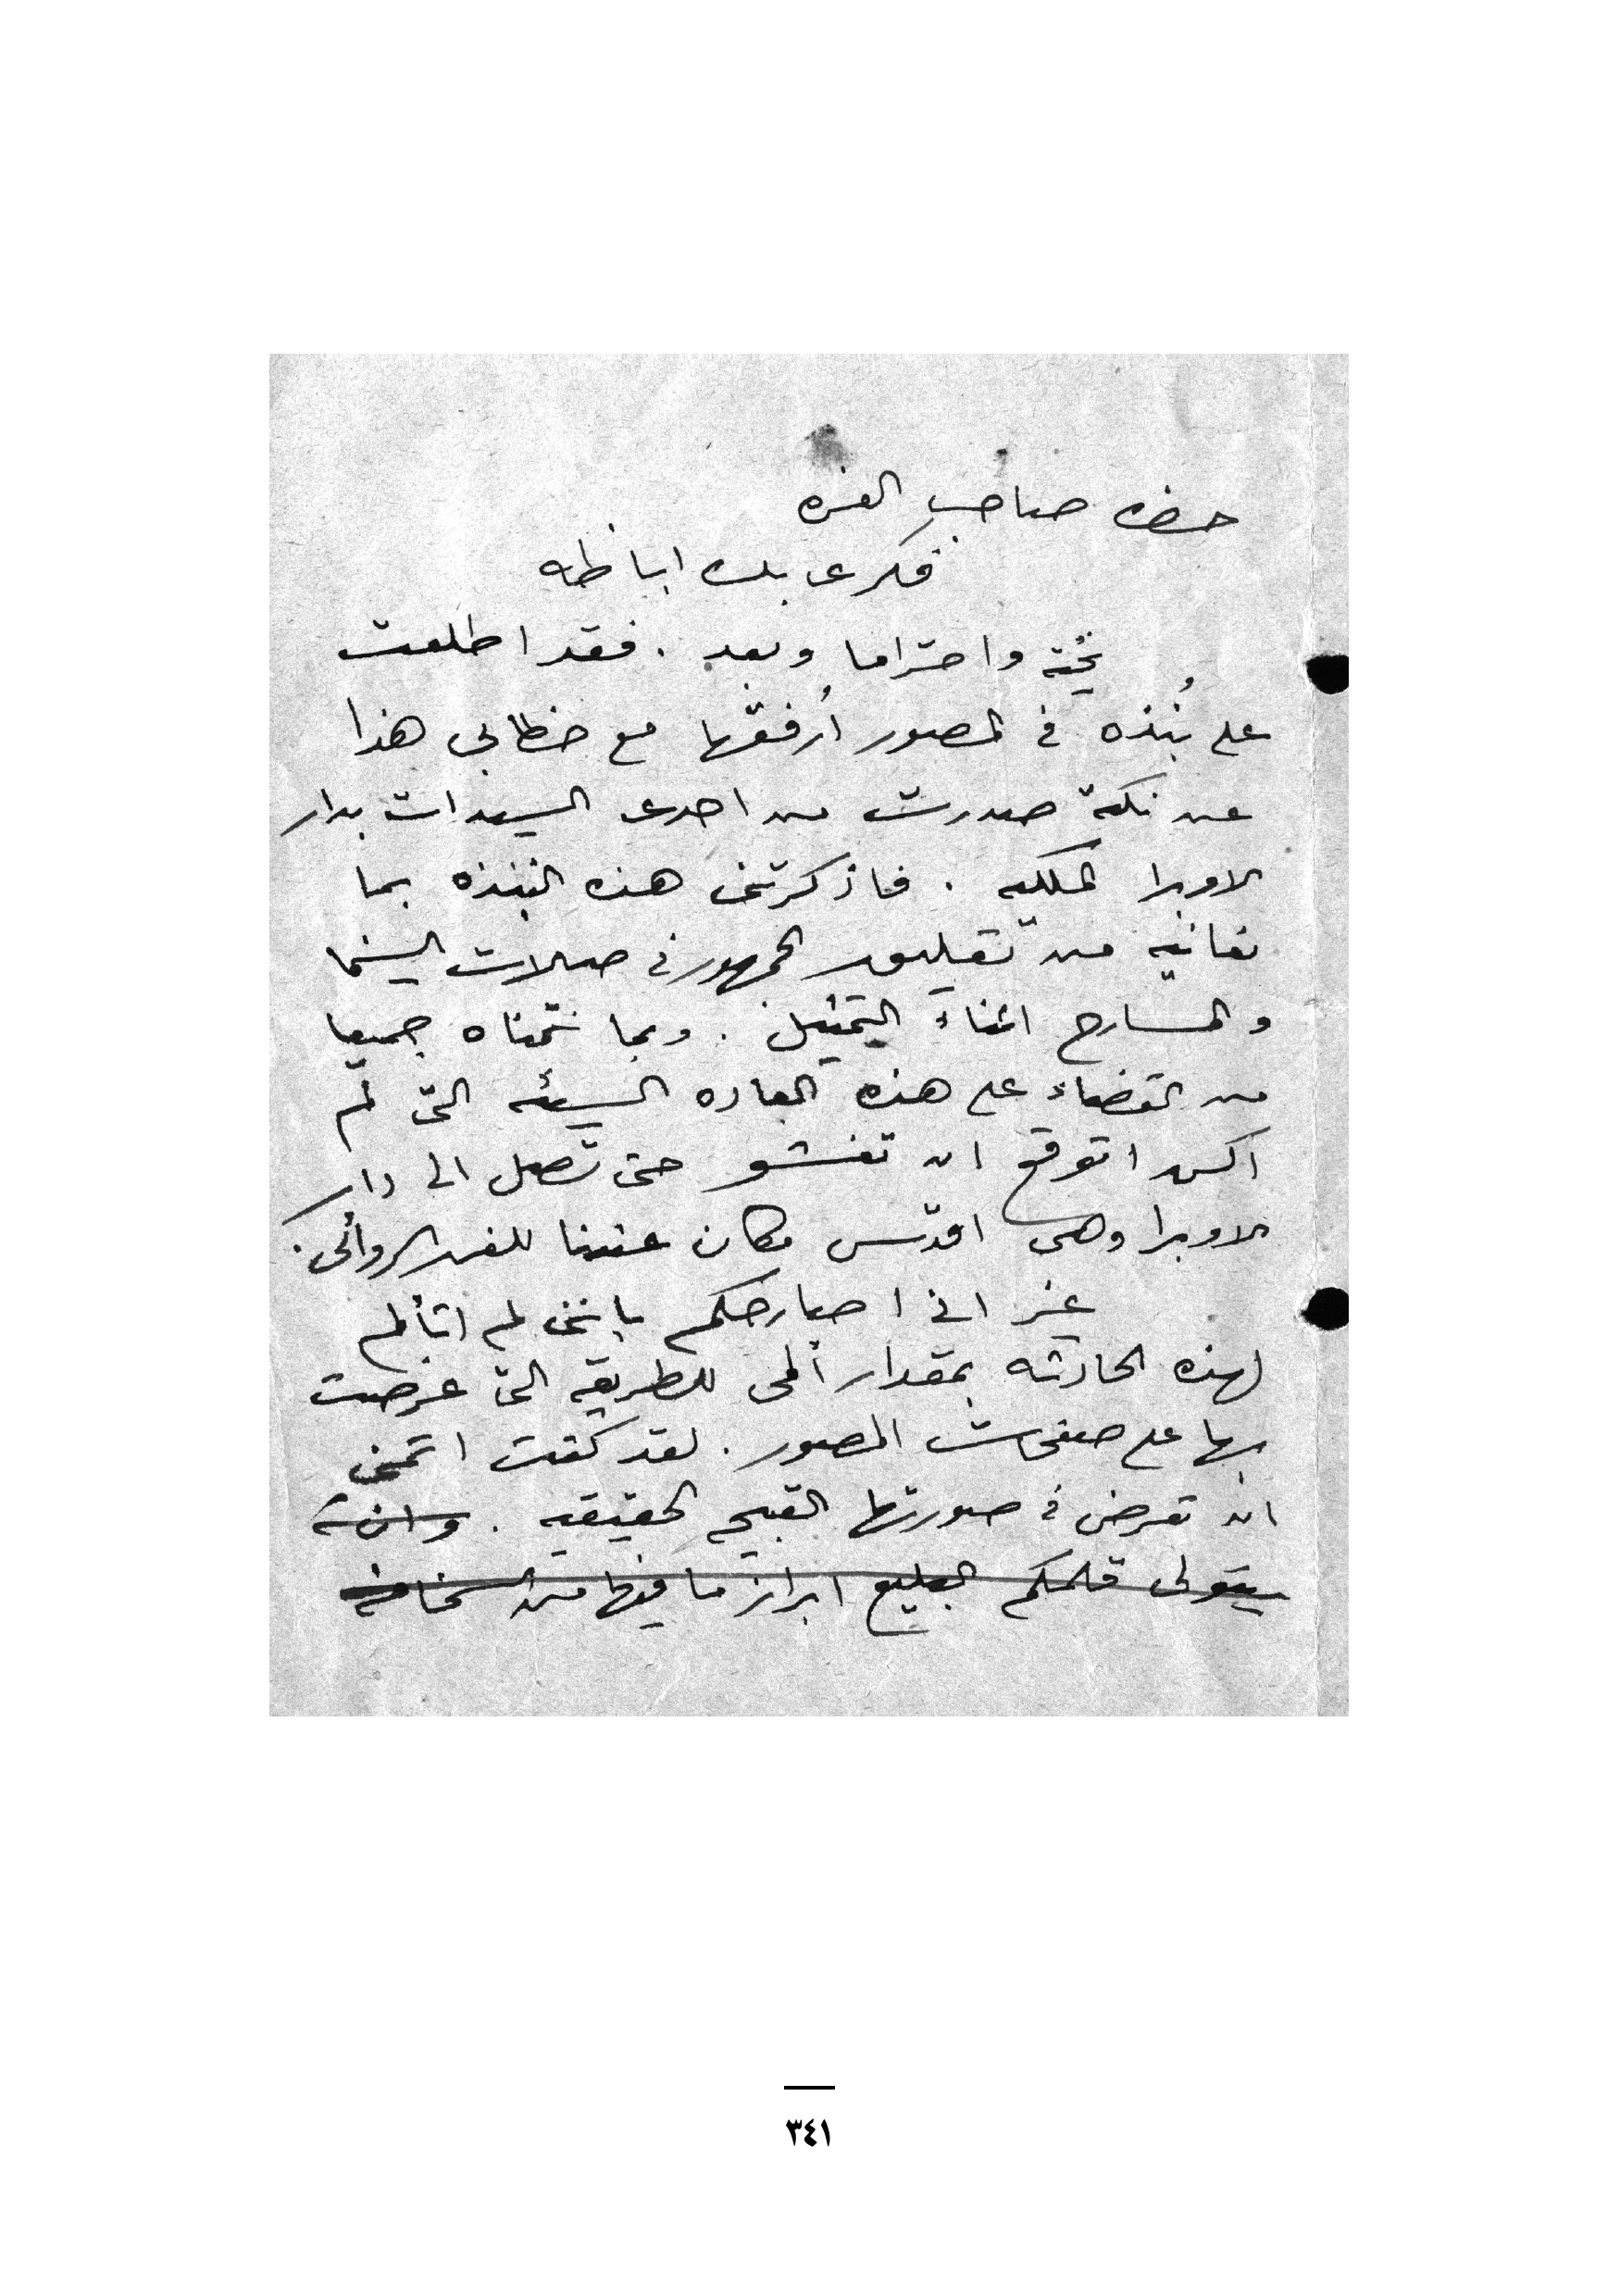 حضرة صاحب العزه
فكرى بك اباظه
تحية واحتراما وبعد . فقد اطلعت
على نُبذه في المصور أُرفقها مع خطابي هذا
عن نكتة صدرت من احدى السيدات بدار
الاوبرا الملكيه . فاذكرتنى هذه النبذه بما
نعانيه من تعليق الجمهور في صالات السينما
والمسارح اثناء التمثيل . وبما نتمناه جميعا
من القضاء على هذه العاده السيئه التى لم
اكن اتوقع ان تفشو حتى تصل الى دار
الاوبرا وهى اقدس مكان عندنا للفن الروائى .
غير انى اصارحكم باننى لم اتألم
لهذه الحادثه بمقدار ألمى للطريقه التى عرضت
بها على صفحات المصور . لقد كنت اتمنى
ان تعرض في صورتها القبيحه الحقيقيه . وان
يتولى قلمكم البليغ ابراز ما فيها من السخافه
٣٤١